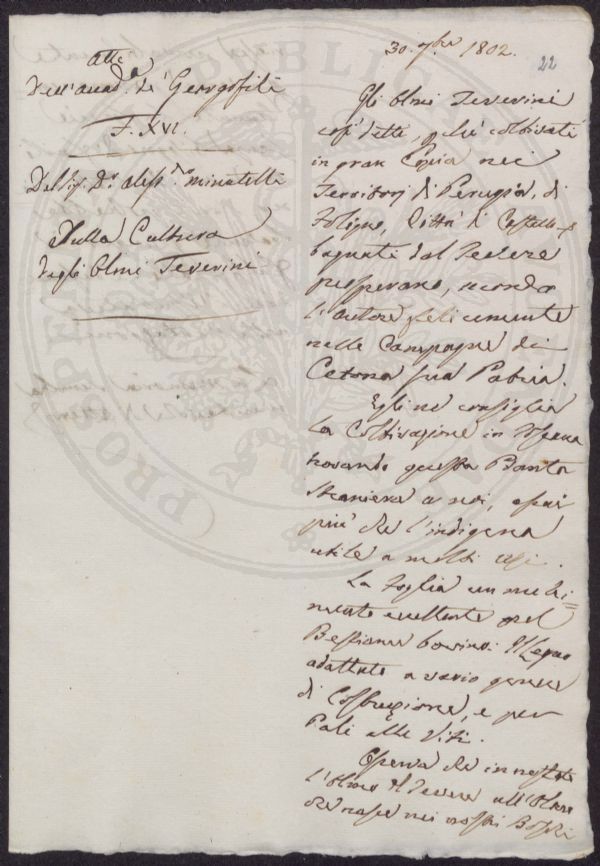 30. 7bre 1802.
22
Atti
Dell'Accad.a de' Georgofili
F. XVI.
Del Sig. Dr. Aless.dro Minutelli
Sulla Cultura
degli Olmi Teverini
Gli Olmi Teverini
così detti, perché coltivati
in gran Copia nei
Territorj di Perugia, di
Foligno, Città di Castello
bagnati dal Tevere
prosperano, secondo
l'autore felicemente
nelle Campagne di
Cetona sua Patria.
Egli ne consiglia
la Coltivazione in Toscana
trovando questa Pianta
straniera a noi, assai
più che l'indigena
utile a molti usi.
La Foglia un nu
mento eccellente pel
Bestiame bovino. Il Legno
adattato a vario genere
di Costruzione, e per
Pali alle Viti.
Osserva che innestato
l'Olmo il Tevere all'Olmo
che nasce nei nostri Boschi
PUBLICAE
PROSPERITATI